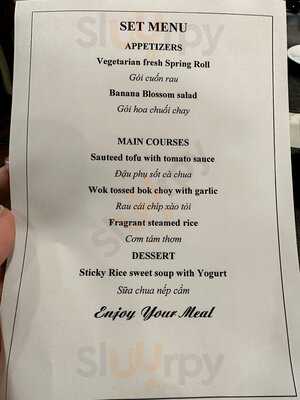 SET MENU
APPETIZERS
Vegetarian fresh Spring Roll
Gỏi cuốn rau
Banana Blossom salad
Gỏi hoa chuối chay
MAIN COURSES
Sauteed tofu with tomato sauce
Đậu phụ sốt cà chua
Wok tossed bok choy with garlic
Rau cải chíp xào tỏi
Fragrant steamed rice
Cơm tám thơm
DESSERT
Sticky Rice sweet soup with Yogurt
Sữa chua nếp cẩm
Enjoy Your Meal
Sluurpy